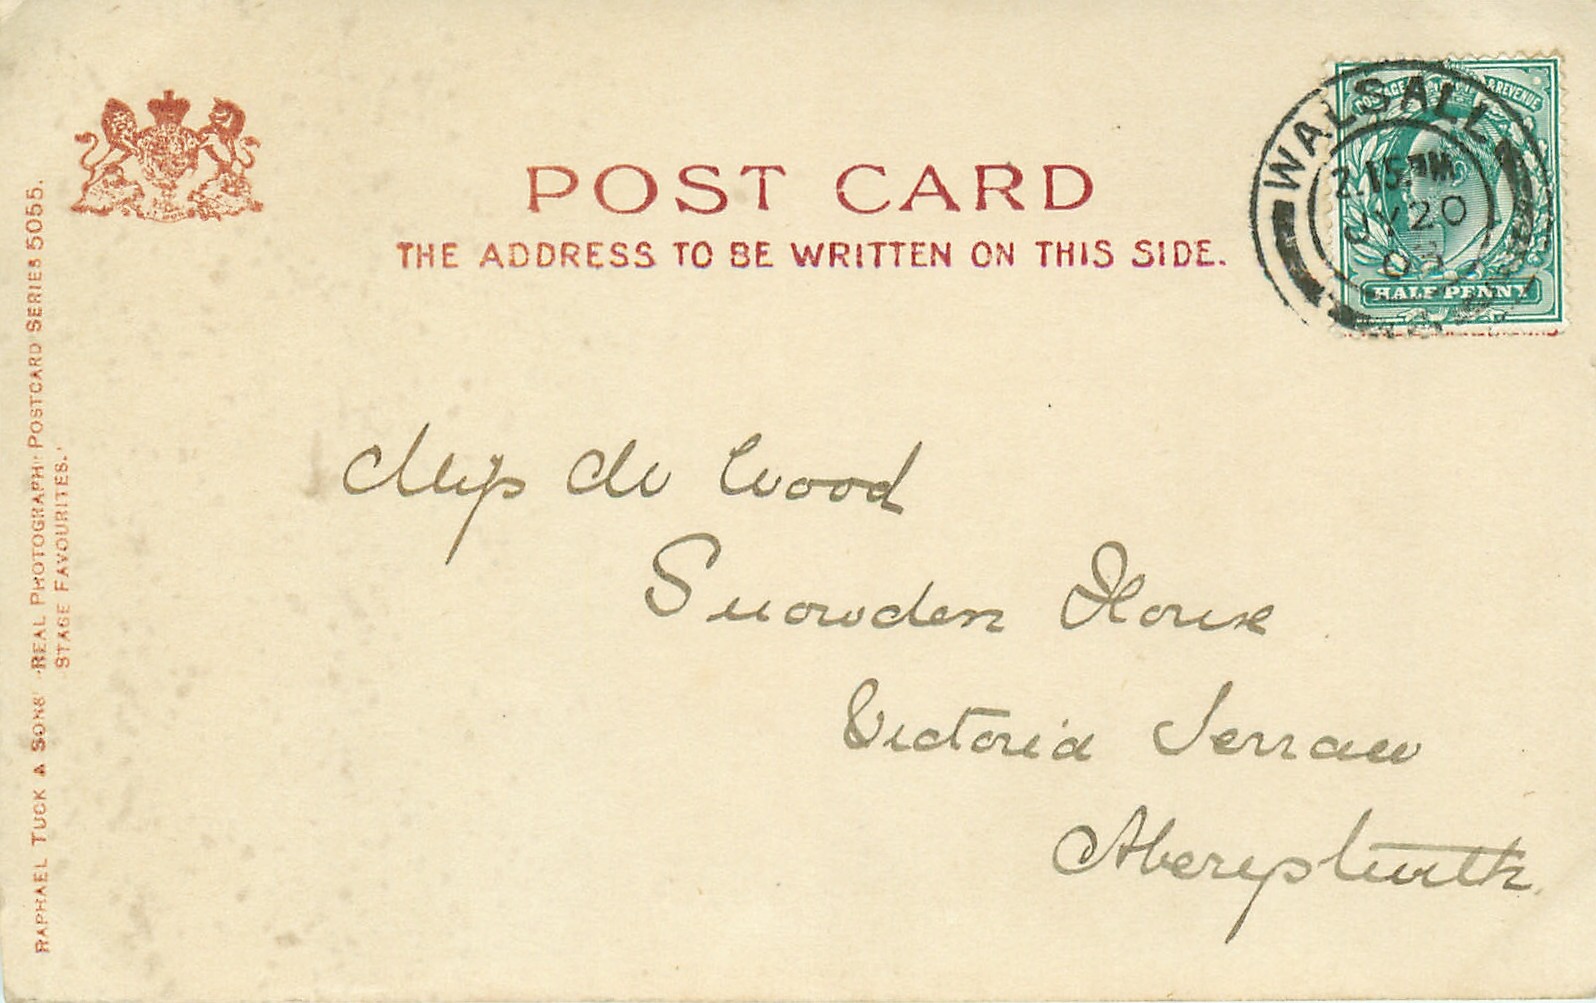 POST CARD
THE ADDRESS TO BE WRITTEN ON THIS SIDE.
RAPHAEL TUCK & SONS' "REAL PHOTOGRAPH" POSTCARD SERIES 5055.
"STAGE FAVOURITES."
WALSALL
2.15 PM
JY 20
POSTAGE & REVENUE
HALF PENNY
Miss M Wood
Snowden House
Victoria Terrace
Aberystwith